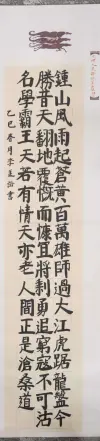 鍾山風雨起蒼黃百萬雄師過大江虎踞龍盤今
勝昔天翻地覆慨而慷宜將剩勇追窮寇不可沽
名學霸王天若有情天亦老人間正是滄桑道
乙巳春月李書